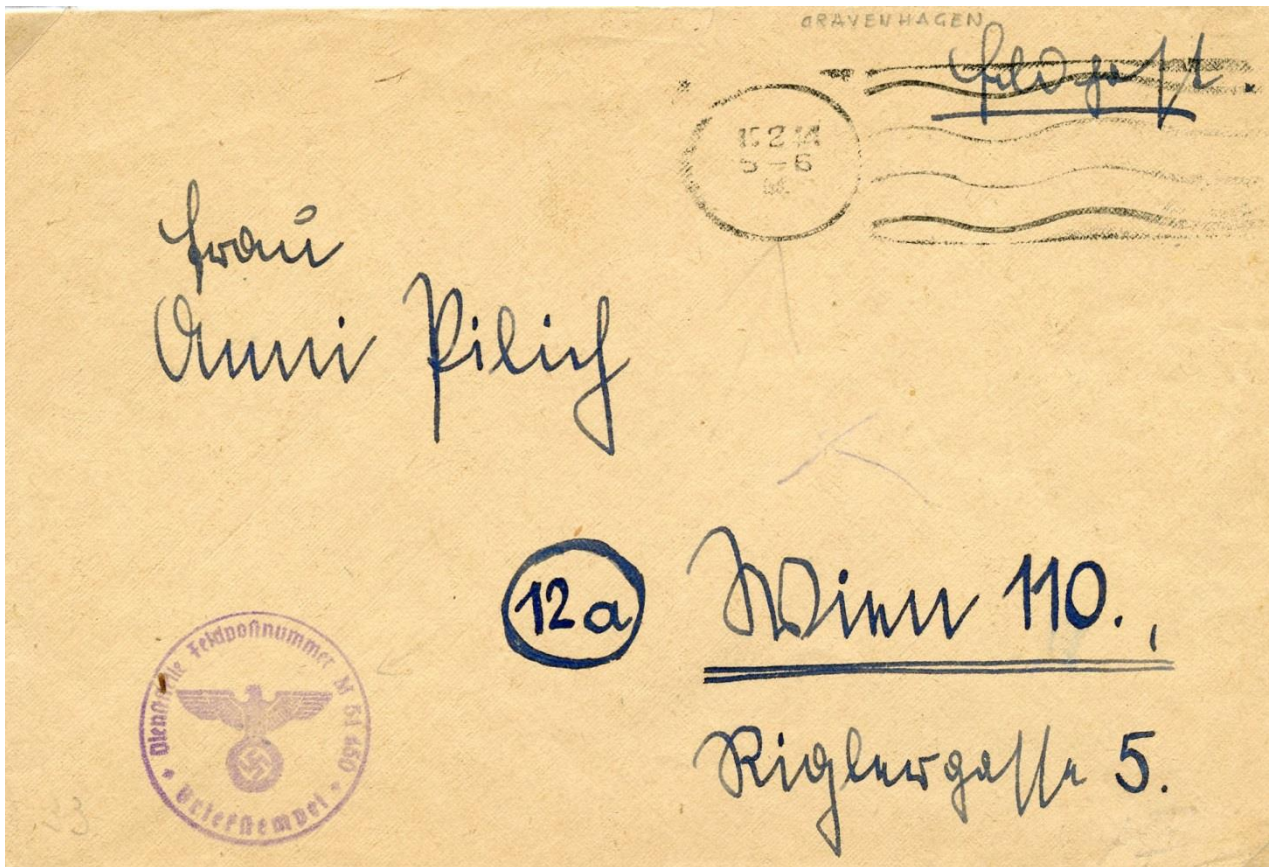 GRAVENHAGEN
Feldpost.
5-6
Frau
Anni Pilich
12a Wien 110.,
Riglergasse 5.
Dienststelle Feldpostnummer M
Briefstempel
33